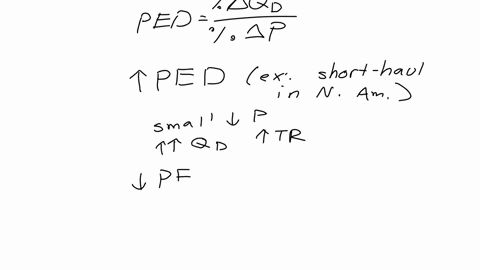 PED = %ΔQD
%ΔP
↑ PED (ex: short-haul
in N. Am.)
small ↓ P
↑↑ QD ↑ TR
↓ PF